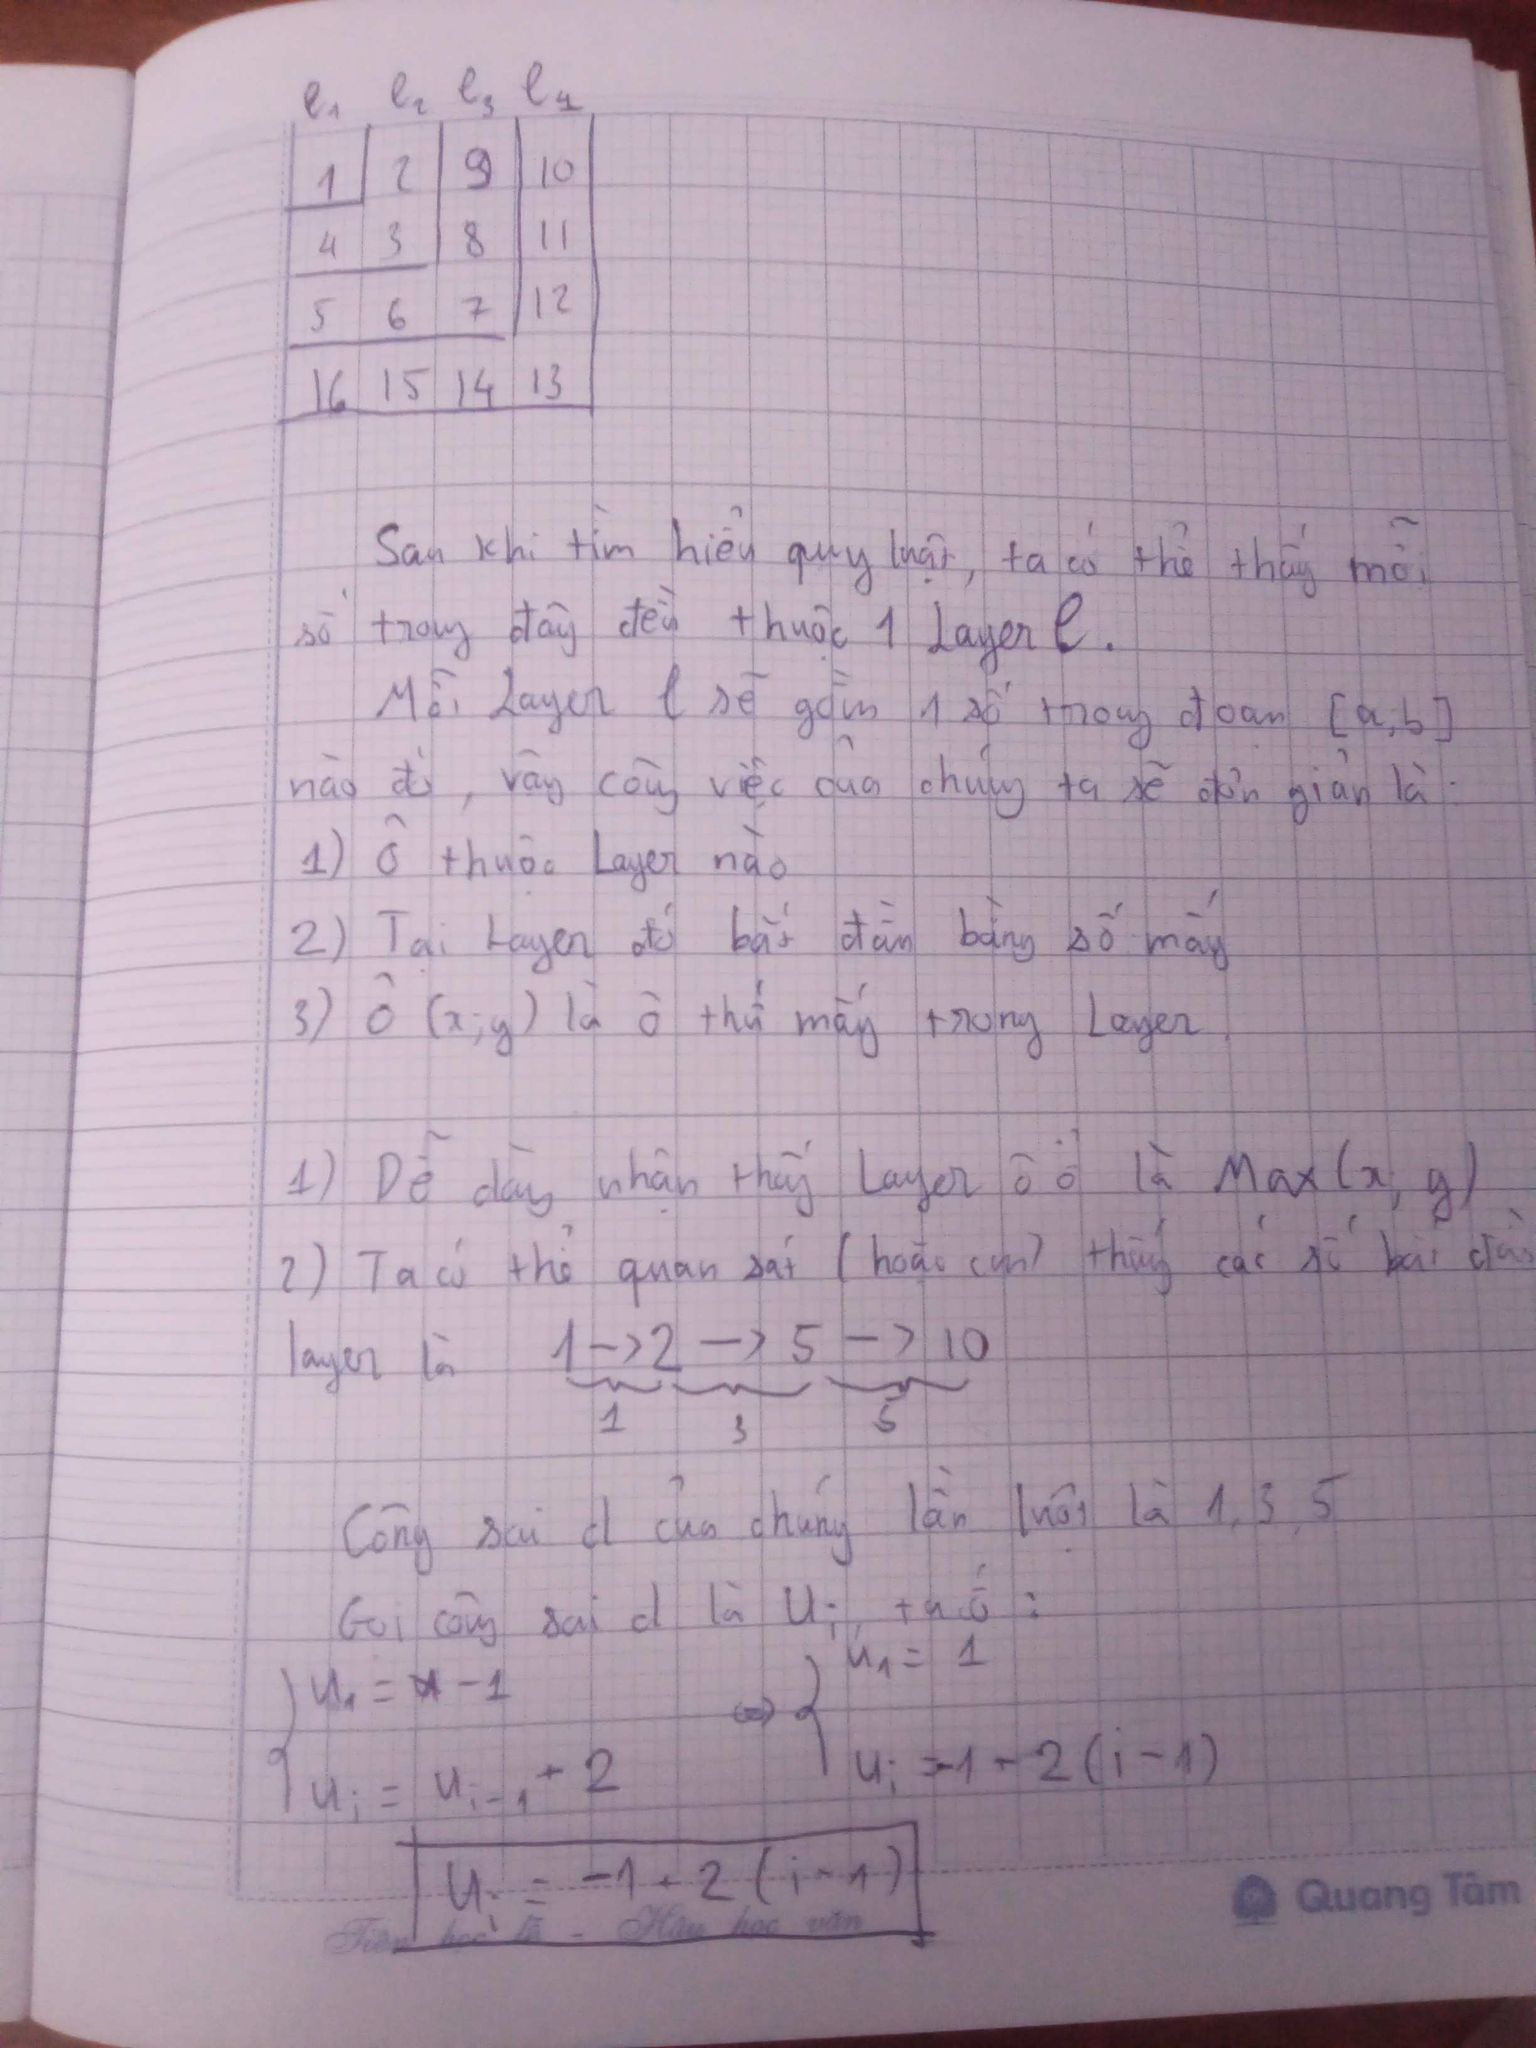 l1 l2 l3 l4
1 2 9 10
4 3 8 11
5 6 7 12
16 15 14 13
Sau khi tìm hiểu quy luật, ta có thể thấy mỗi
số trong đây đều thuộc 1 Layer l.
Mỗi Layer l sẽ gồm 1 số trong đoạn [a;b]
nào đó, vậy công việc của chúng ta sẽ đơn giản là:
1) Ô thuộc Layer nào
2) Tại Layer đó bắt đầu bằng số mấy
3) Ô (x;y) là ô thứ mấy trong Layer.
1) Dễ dàng nhận thấy Layer ô ở là Max(x, y)
2) Ta có thể quan sát (hoặc cm) thấy các số bắt đầu
layer là 1 -> 2 -> 5 -> 10
1 3 5
Công sai d của chúng lần lượt là 1, 3, 5
Gọi công sai d là Ui, ta có:
u1 = -1 <=> u1 = 1
ui = ui-1 + 2 ui = -1 + 2(i-1)
Ui = -1 + 2(i-1)
Tiên học lễ - Hậu học văn
Quang Tâm